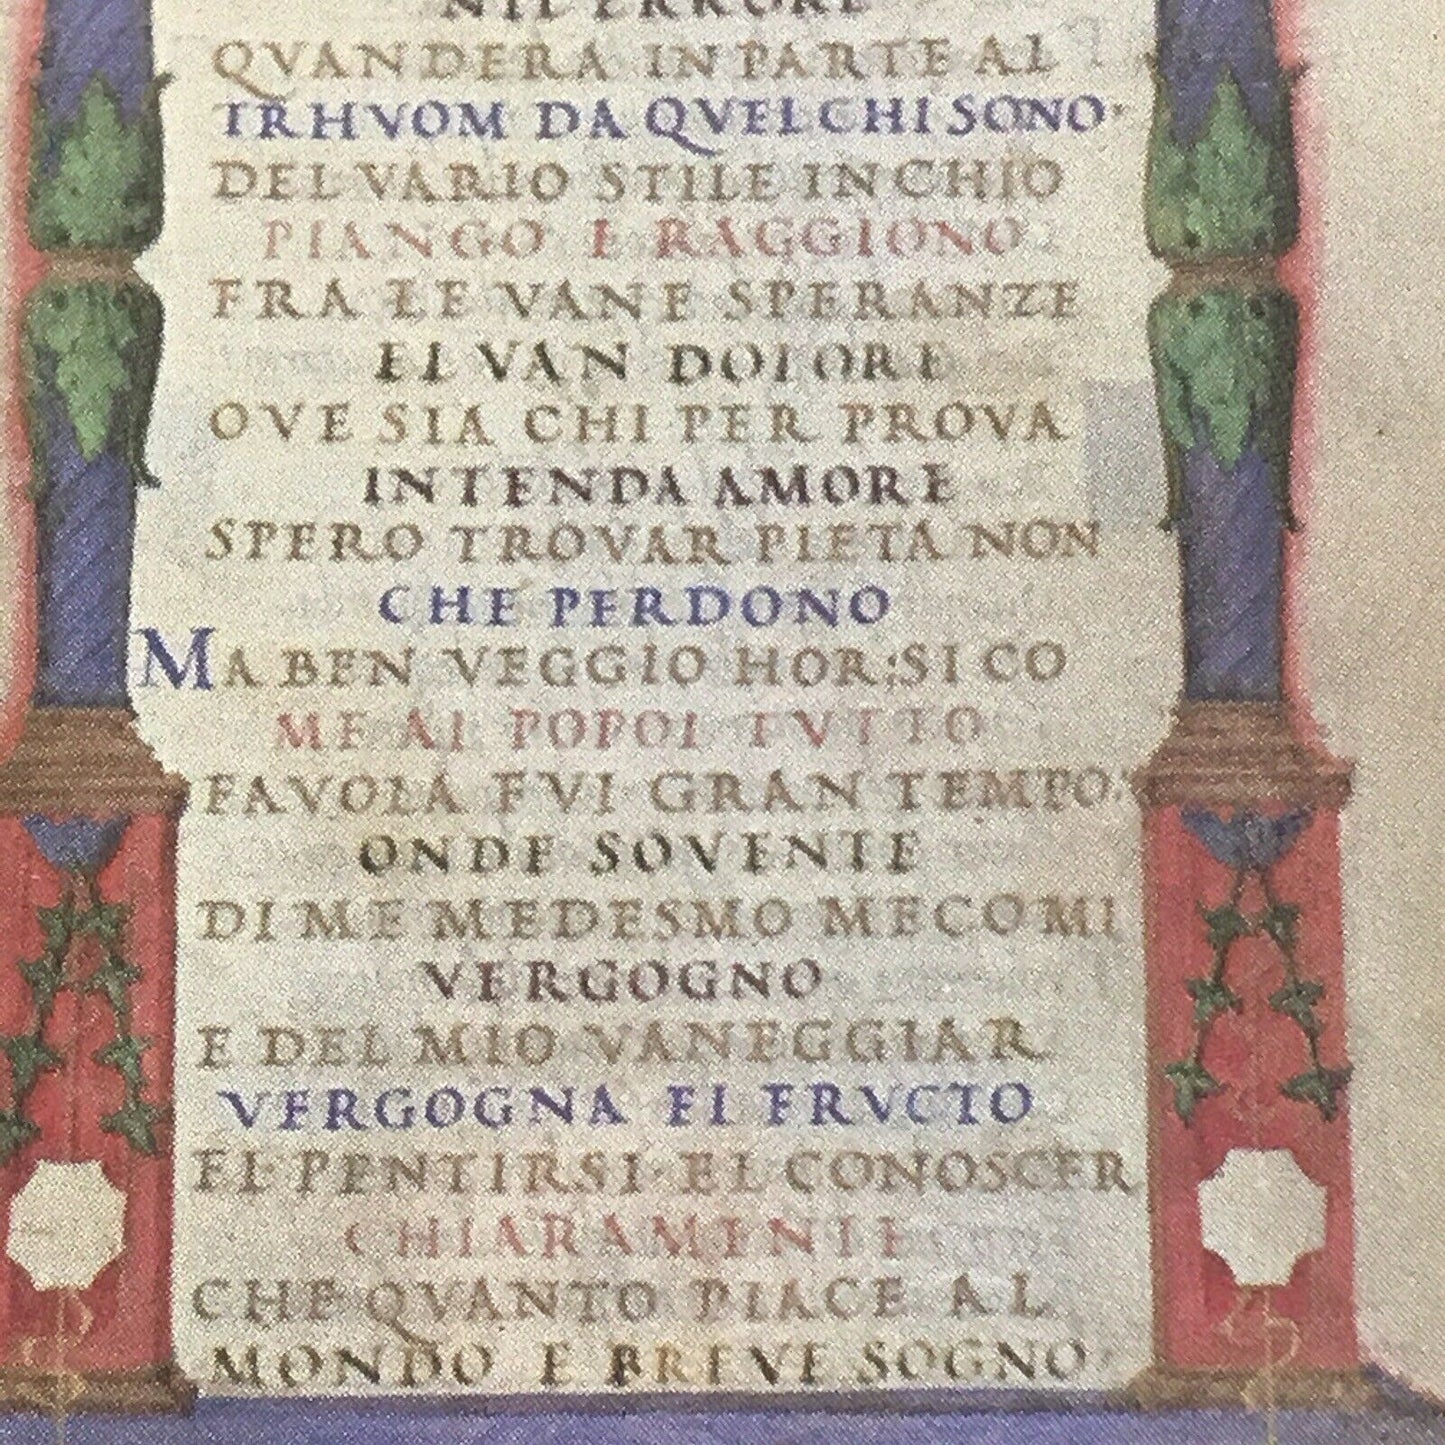 NIL ERRORE
QVANDERA IN PARTE AL
TRHVOM DA QVEL CHI SONO·
DEL VARIO STILE IN CHIO
PIANGO E RAGGIONO
FRA LE VANE SPERANZE
EL VAN DOLORE
OVE SIA CHI PER PROVA
INTENDA AMORE
SPERO TROVAR PIETA NON
CHE PERDONO
MA BEN VEGGIO HOR:SI CO
ME AL POPOL TVTTO
FAVOLA FVI GRAN TEMPO:
ONDE SOVENTE
DI ME MEDESMO MECO MI
VERGOGNO
E DEL MIO VANEGGIAR
VERGOGNA EL FRVCTO
EL PENTIRSI EL CONOSCER
CHIARAMENTE
CHE QVANTO PIACE AL
MONDO E BREVE SOGNO